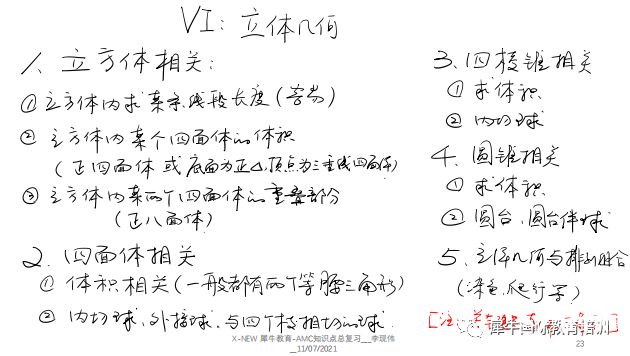 VI: 立体几何
1. 立方体相关:
① 立方体内求某条线段长度(容易)
② 立方体内某个四面体的体积
(正四面体 或 底面为正△,顶点为三垂线四面体)
③ 立方体内某两个四面体的重叠部分
(正八面体)
2. 四面体相关
① 体积相关(一般都有两个等腰三角形)
② 内切球,外接球,与四个棱相切的球
3. 四棱锥相关
① 求体积
② 内切球
4. 圆锥相关
① 求体积
② 圆台、圆台伴球
5. 立体几何与排列组合
(染色,爬行等)
[注:
犀牛国际教育培训
X-NEW 犀牛教育-AMC知识点总复习__李现伟
_11/07/2021
23